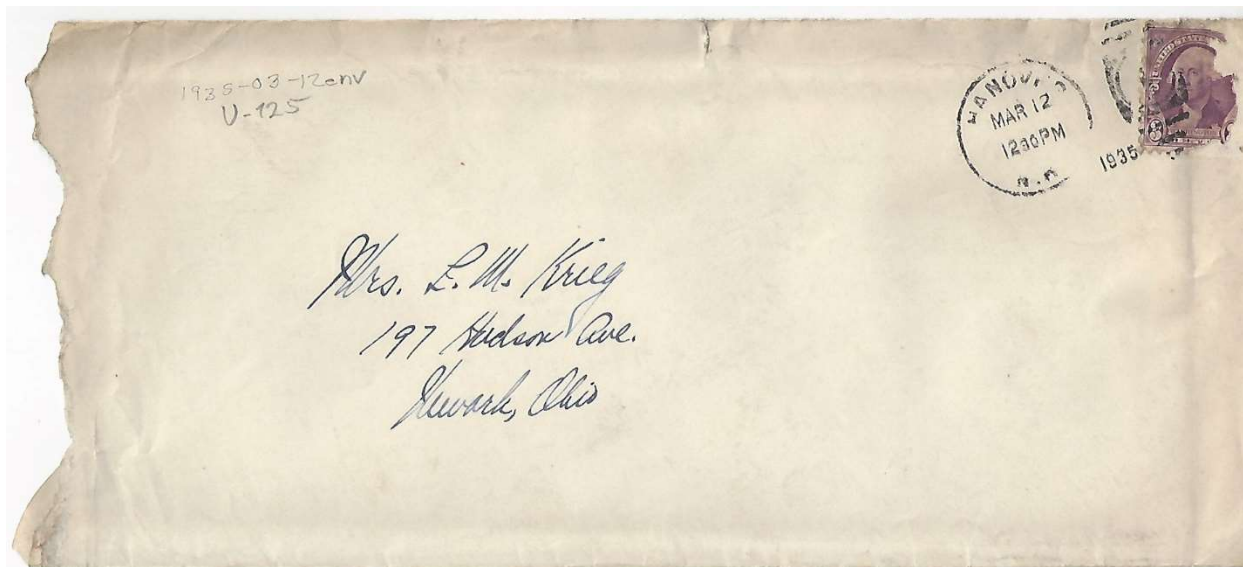 1935-03-12env
U-125
HANOVER
MAR 12
1230PM
1935
N.H.
UNITED STATES
3
Mrs. L. M. Krieg
197 Hudson Ave.
Newark, Ohio